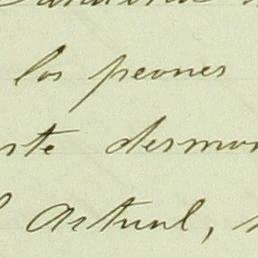 los peones
ste desmon
l Astual,